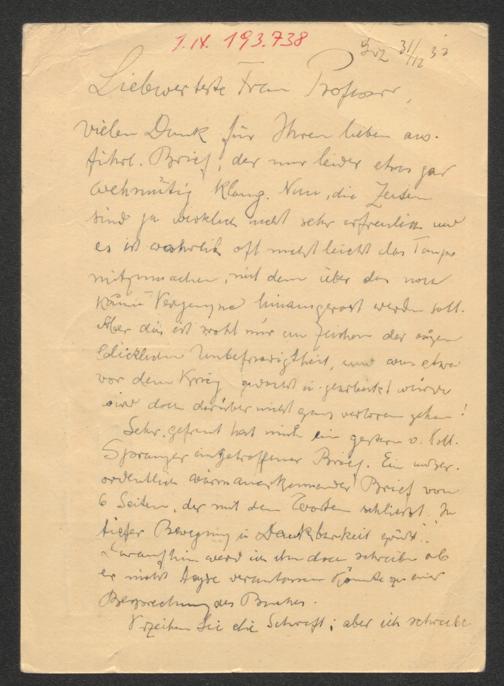 I.N. 193.738
Grz 31/12 37
Liebwerteste Frau Professor,
vielen Dank für Ihren lieben aus-
führl. Brief, der nur leider etwas gar
wehmütig klang. Nun, die Zeiten
sind ja wirklich nicht sehr erfreulich und
es ist wahrlich oft nicht leicht das Tempo
mitzumachen, mit dem über das noch
kaum Vergangene hinausgerast werden soll.
Aber das ist wohl nur ein Zeichen der augen-
blicklichen Unbefriedigtheit, und was etwa
vor dem Krieg gedacht u. gearbeitet wurde
wird doch darüber nicht ganz verloren gehen!
Sehr gefreut hat mich ein gestern v. Koll.
Spranger eingetroffener Brief. Ein ausser-
ordentlich warm anerkennender Brief von
6 Seiten, der mit den Worten schliesst: "In
tiefer Bewegung u. Dankbarkeit grüsst".
Daraufhin werd ich ihm doch schreiben ob
er nicht veranlassen könnte zu einer
Besprechung des Buches.
Verzeihen Sie die Schrift; aber ich schreibe